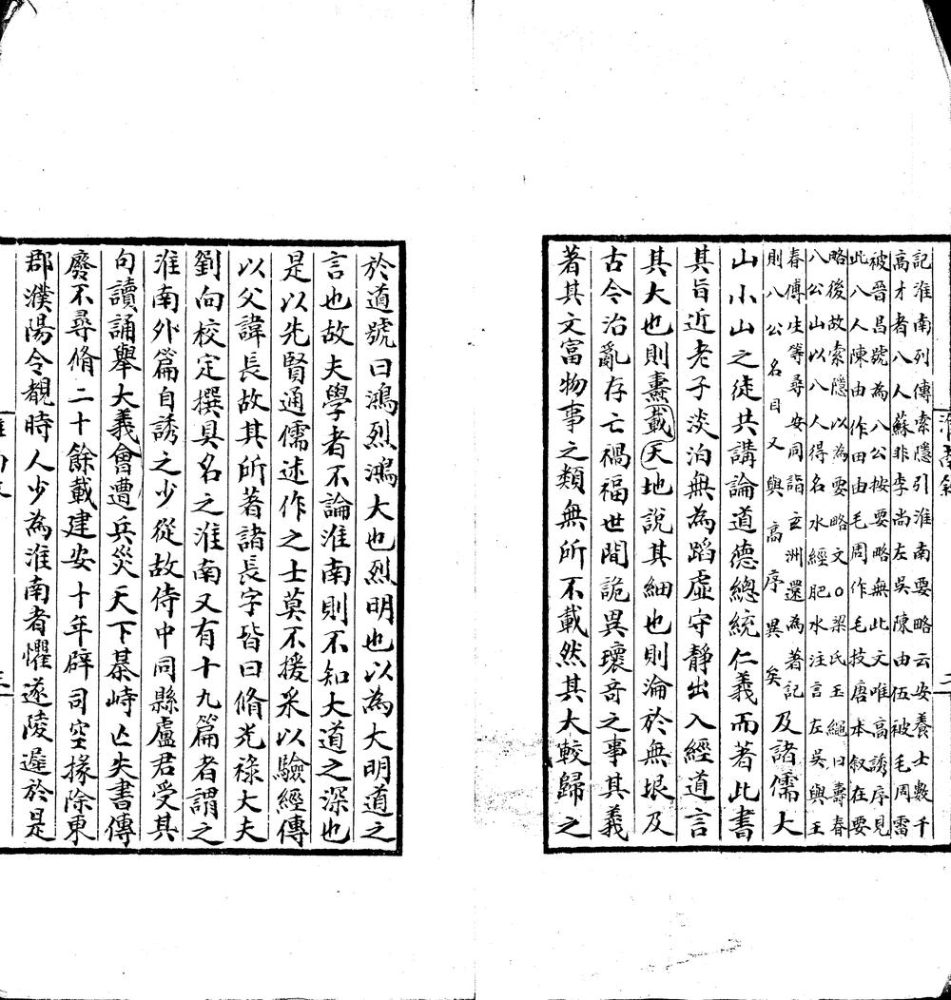 記淮南列傳索隱引淮南要略云安養士數千
高才者八人蘇非李尚左吳陳由伍被毛周雷
被晉昌號為八公按要略無此文唯高誘序見
此八人陳由作田由毛周作毛技唐本叙在要
略後故索隱以為要略文〇梁氏玉繩曰壽春
八公山以八人得名水經肥水注言左吳與王
春傅生等尋安同詣玄洲還為著記
則八公名目又與高序異矣
及諸儒大
山小山之徒共講論道德總統仁義而著此書
其旨近老子淡泊無為蹈虛守靜出入經道言
其大也則燾載天地說其細也則淪於無垠及
古今治亂存亡禍福世間詭異瓌奇之事其義
著其文富物事之類無所不載然其大較歸之
於道號曰鴻烈鴻大也烈明也以為大明道之
言也故夫學者不論淮南則不知大道之深也
是以先賢通儒述作之士莫不援采以驗經傳
以父諱長故其所著諸長字皆曰脩光祿大夫
劉向校定撰具名之淮南又有十九篇者謂之
淮南外篇自誘之少從故侍中同縣盧君受其
句讀誦舉大義會遭兵災天下棊峙亡失書傳
廢不尋脩二十餘載建安十年辟司空掾除東
郡濮陽令覩時人少為淮南者懼遂陵遲於是